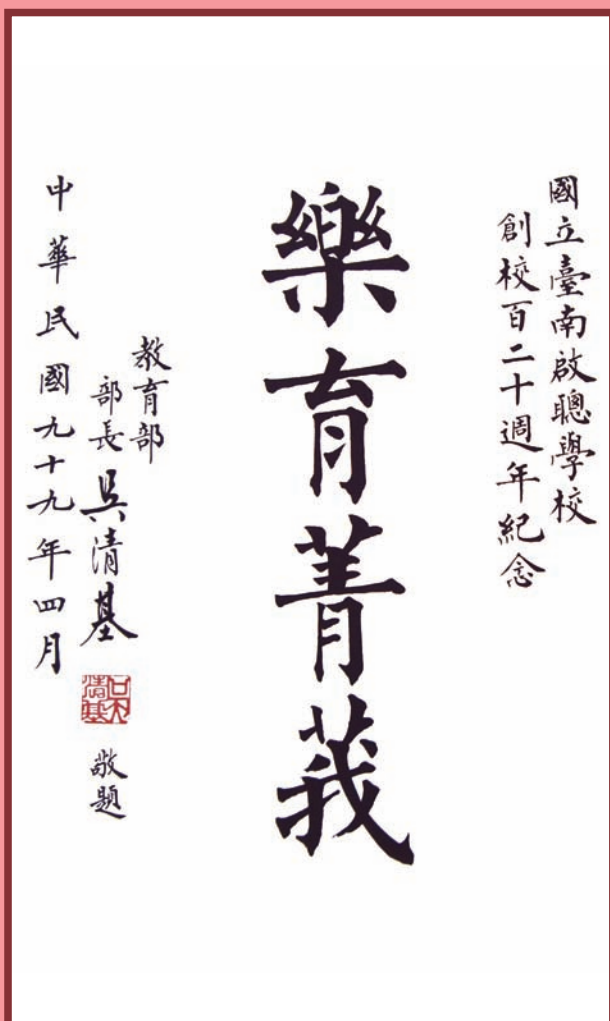 國立臺南啟聰學校
創校百二十週年紀念
樂育菁莪
教育部
部長吳清基
吳清基
敬題
中華民國九十九年四月